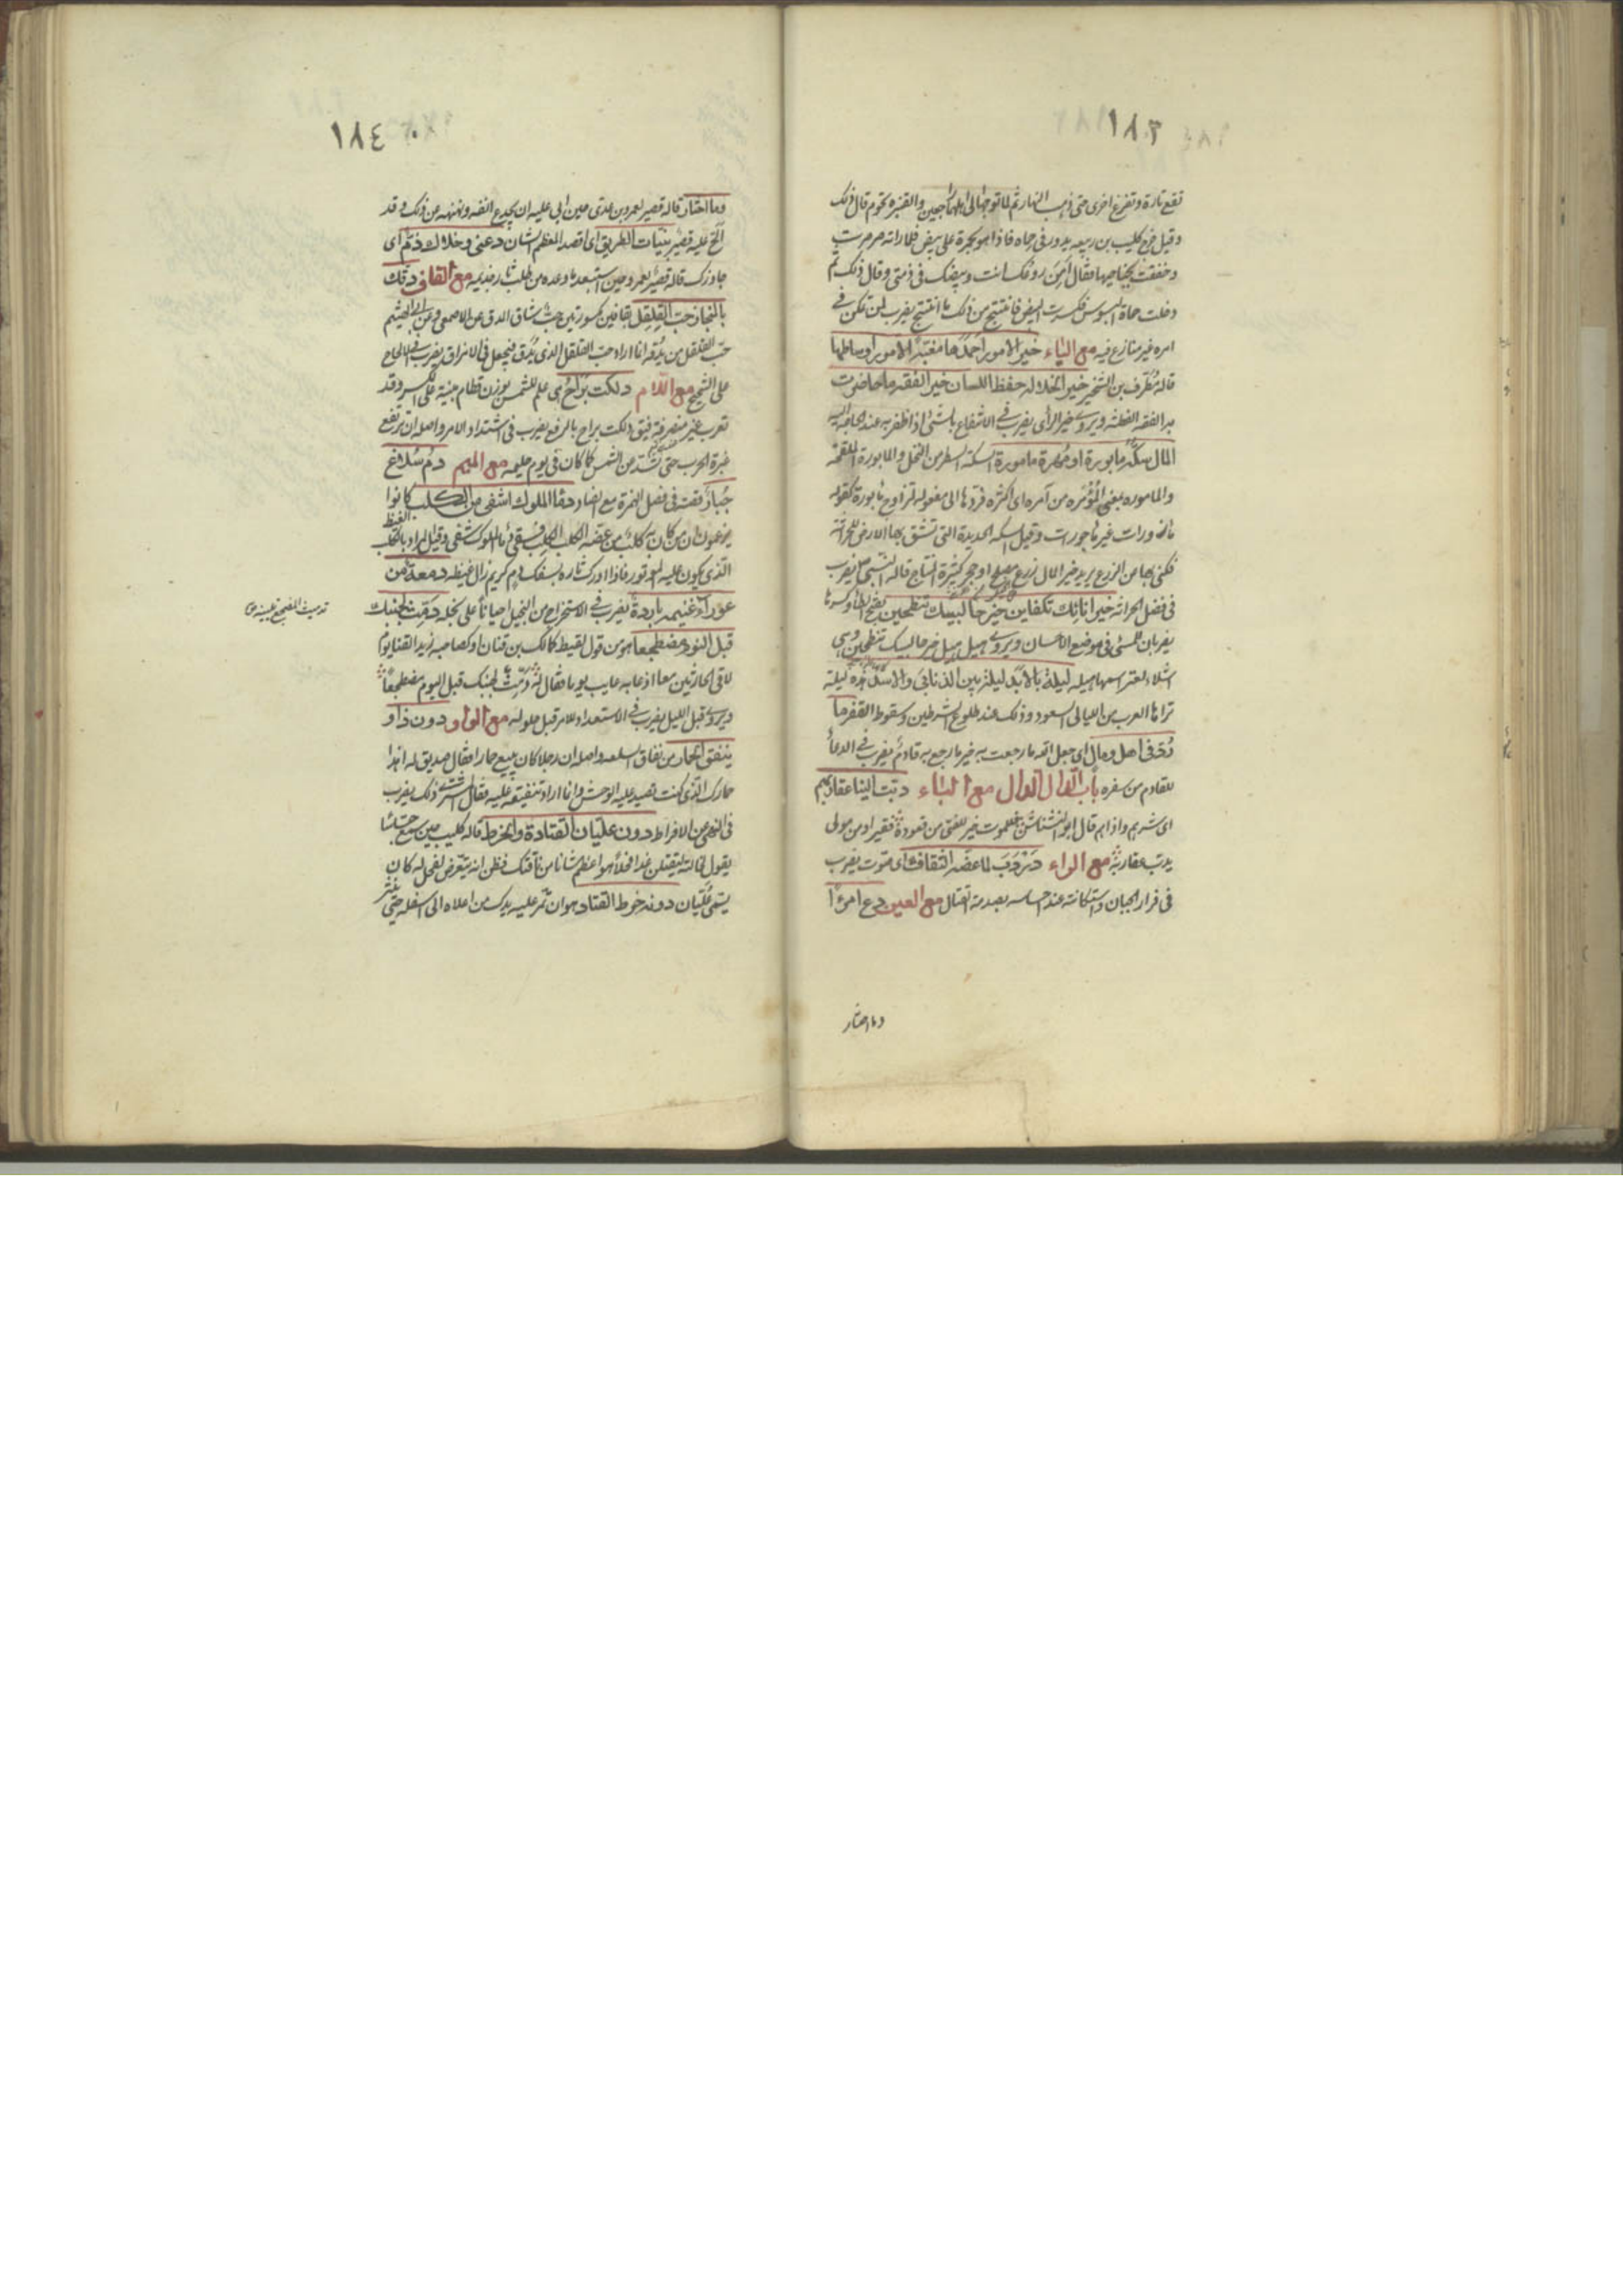 ١٨٣
تقع تارة وتفزع اخرى حتى ذهب النهار ثم لما توجها الى اهلها اجمعين والقنبرة تحوم قال ذلك
وقيل خرج كليب بن ربيعه يدور فى حماه فاذا هو بحمرة على بيض فلما راته صرصرت
وخفقت بجناحيها فقال امن روعك انت وبيضك فى ذمتى وقال ذلك ثم
دخلت حماه البسوس فكسرت البيض فانتتج من ذلك ما انتتج يضرب لمن تمكن فى
امره غير منازع فيه مع الياء خير الامور احمدها مغبة الامور اوساطها
قاله مطرف بن الشخير خير الخلال حفظ اللسان خير الفقه ما حاضرت
به الفقه الفطنه ويروى خير الرأى يضرب فى الانتفاع بالشئ اذا ظفر به عند الحاجة اليه
المال سكة مأبورة او مهرة مأمورة السكة السطر من النخل والمأبورة الملقحة
والماموره بمعنى المؤمره من آمره اى اكثره فردها الى مفعوله لتزاوج مأبورة كقوله
مأزورات غير مأجورات وقيل السكه الحديدة التى تشق بها الارض للحراثة
فكنى بها عن الزرع يريد خير المال زرع مصلح او حجر كثيرة النتاج قاله النبى صلعم يضرب
فى فضل الحراثه خير انائك تكفاين خير حالبيك تنطحين بفتح الطاء وكسرها
يضربان للمسئ فى موضع الاحسان ويروى هيل هيل خير حالبيك تنطحين وهى
ليلة بالابد ليلة بين الزبانى والاسد هذه ليلة
تراها العرب من الليالى السعود وذلك عند طلوع الشرطين وسقوط الغفر ما
رد فى اهل ومال اى جعل الله ما رجعت به خير ما رجع به قادم يضرب فى الدعاء
للقادم من سفره باب الدال الدال مع الباء دبت الينا عقاربهم
اى شرهم واذاهم قال ابو النشناش فللموت خير للفتى من قعوده فقيرا ومن مولى
يدب عقاربه مع الراء دردب لما عضه الثقاف اى صوت يضرب
فى فرار الجبان واستكانته عند احساسه بصدمة القتال مع العين دع امرءا
وما اختار
١٨٤
وما اختار قاله قصير لعمرو بن عدى حين ابى عليه ان يجدع انفه ونهنهه عن ذلك وقد
الح عليه قصير بنيات الطريق اى اقصد المعظم الشان دعنى وخلاك ذم اى
جاوزك قاله قصير لعمرو حين استبعد ما وعده من طلب ثار جذيمه مع القاف دقك
بالمنحاز حب القلقل بقافين مكسورتين حب شاق الدق عن الاصمعى وعن ابى الهيثم
حب الفلفل من يدقه انما اراد حب الفلفل الذى يدق فيجعل فى الامراق يضرب فى الالحاح
على الشحيح مع اللام دلكت براح هى علم للشمس بوزن قطام مبنية على الكسر وقد
تعرب غير منصرفة فيق دلكت براح بالرفع يضرب فى اشتداد الامر واصله ان ترتفع
غبرة الحرب حتى تستد عين الشمس كما كان فى يوم حليمه مع الميم دم سلاغ
جبار قصته فى فصل الهمزة مع الضاد دماء الملوك اشفى من الكلب كانوا
يزعمون ان من كان به كلب من عضه الكلب الكلب فسقى دماء الملوك شفى وقيل المراد بالكلب الغيظ
الذى يكون عليه الموتور فاذا ادرك ثاره بسفك دم كريم زال غيظه دمعة من
عوراء غنيمة باردة يضرب فى الاستخراج من البخيل احيانا على بخله دمث لجنبك
قبل النوم مضطجعا هو من قول لقيط كالك بن قنان او كصاحبه زيد القنا يوم
لاقى الحارثين معا اذ عابه عايب يوما فقال له دمث لجنبك قبل اليوم مضطجعا
ويروى قبل الليل يضرب فى الاستعداد للامر قبل حلوله مع الواو دون ذا و
ينفق الحمار من نفاق السلعه واصله ان رجلا كان يبيع حمارا فقال صديق له اهذا
حمارك الذى كنت تصيد عليه الوحش وانما اراد تنفيقه عليه فقال المشترى ذلك يضرب
فى النهى عن الافراط دون عليان القتادة والخرط قاله كليب حين سمع جساسا
يقول لخالته ليقتلن غدا فحلا هو اعظم شانا من ناقتك فظن انه يتعرض لفحل له كان
يسمى عليان دونه خرط القتاد هو ان تمر عليه يدك من اعلاه الى اسفله حتى ينتثر